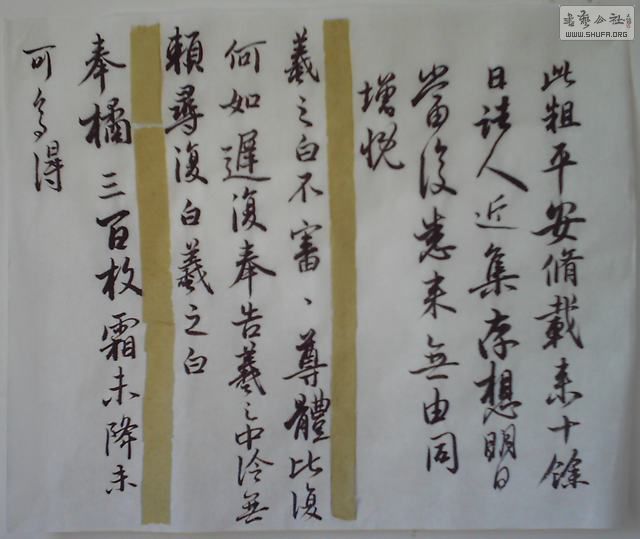 此粗平安脩載來十餘
日諸人近集存想明日
當復悉來無由同
增慨
羲之白不審、尊體比復
何如遲復奉告羲之中冷無
賴尋復白羲之白
奉橘三百枚霜未降未
可多得
書藝公社
WWW.SHUFA.ORG